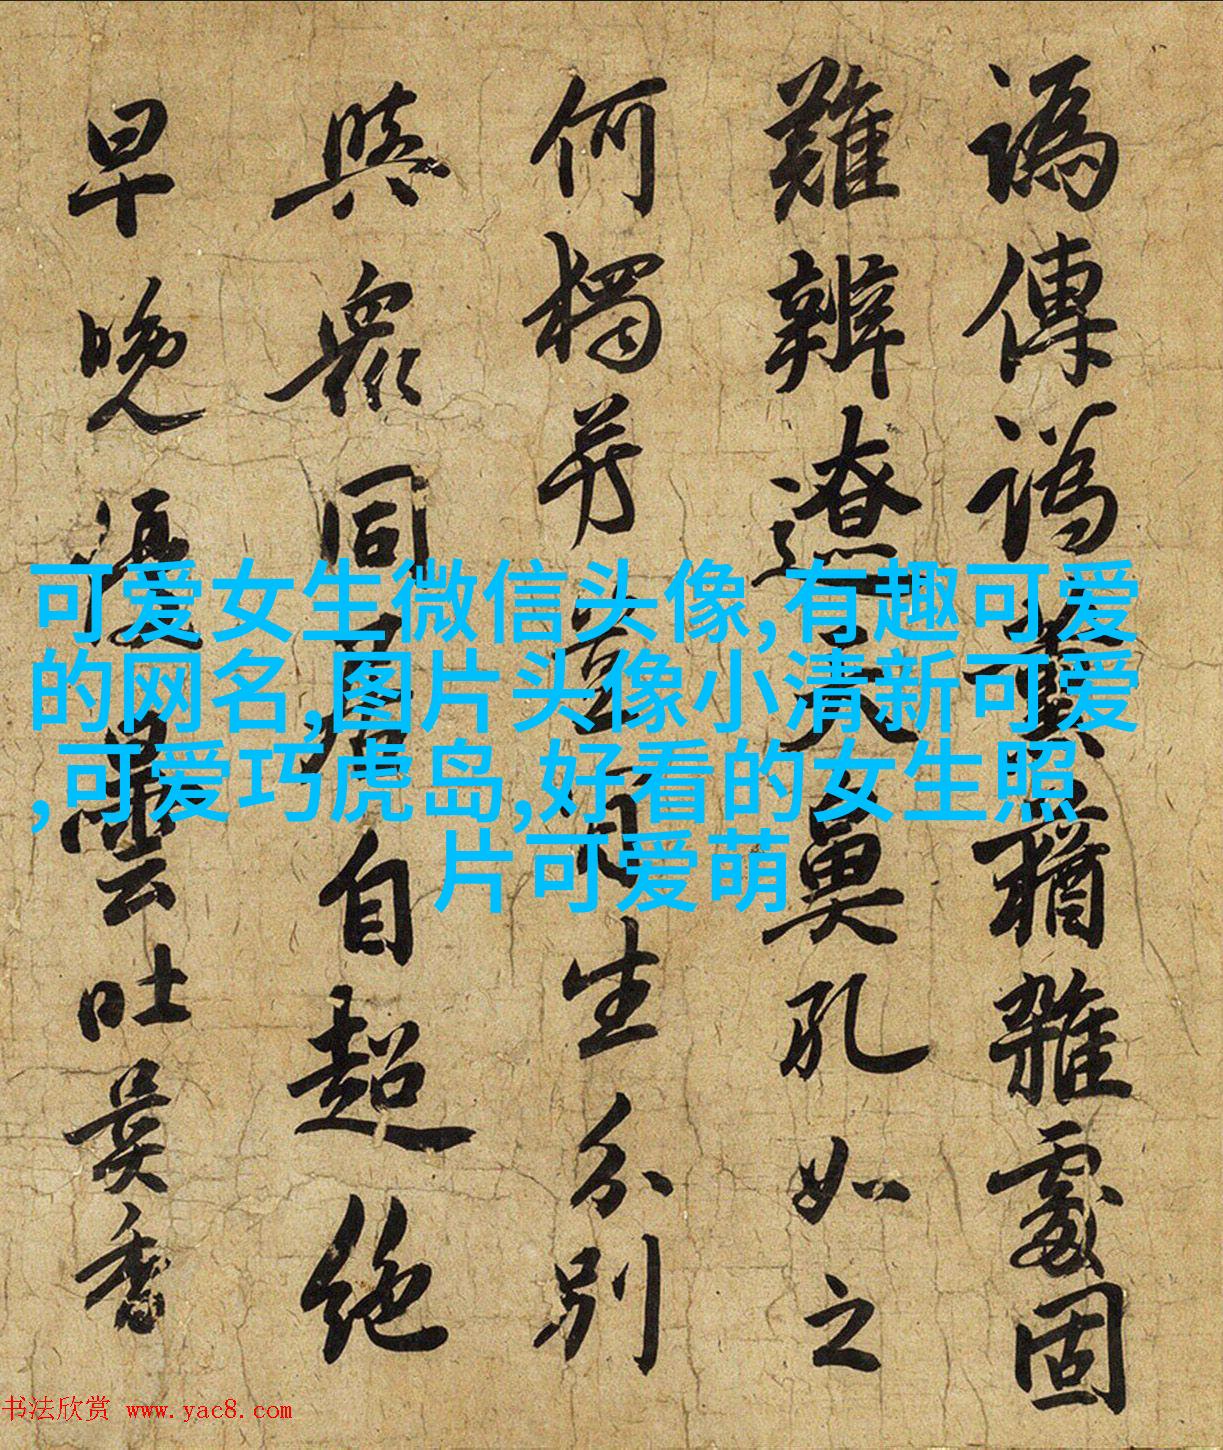 譌傳譌薰蕕雜處固
難辨遼天鼻孔如之
何獨芳豈生分別
與衆同居自超絶
早晚優曇吐異香
可爱女生微信头像,有趣可爱
的网名,图片头像小清新可爱
,可爱巧虎岛,好看的女生照
片可爱萌
书法欣赏 www.yac8.com